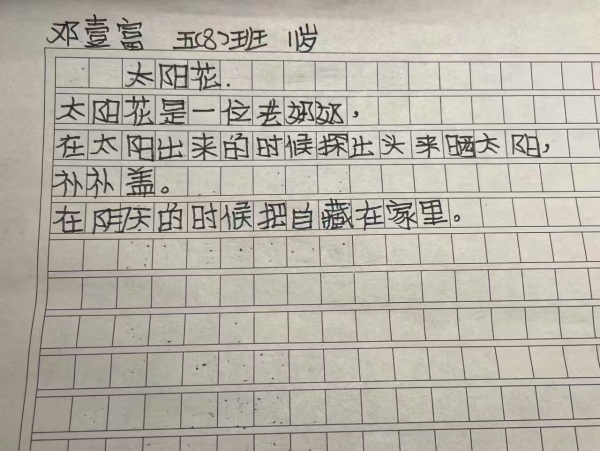 邓壹富 五(8)班 11岁
太阳花.
太阳花是一位老奶奶，
在太阳出来的时候探出头来晒太阳，
补补盖。
在阴天的时候把自藏在家里。